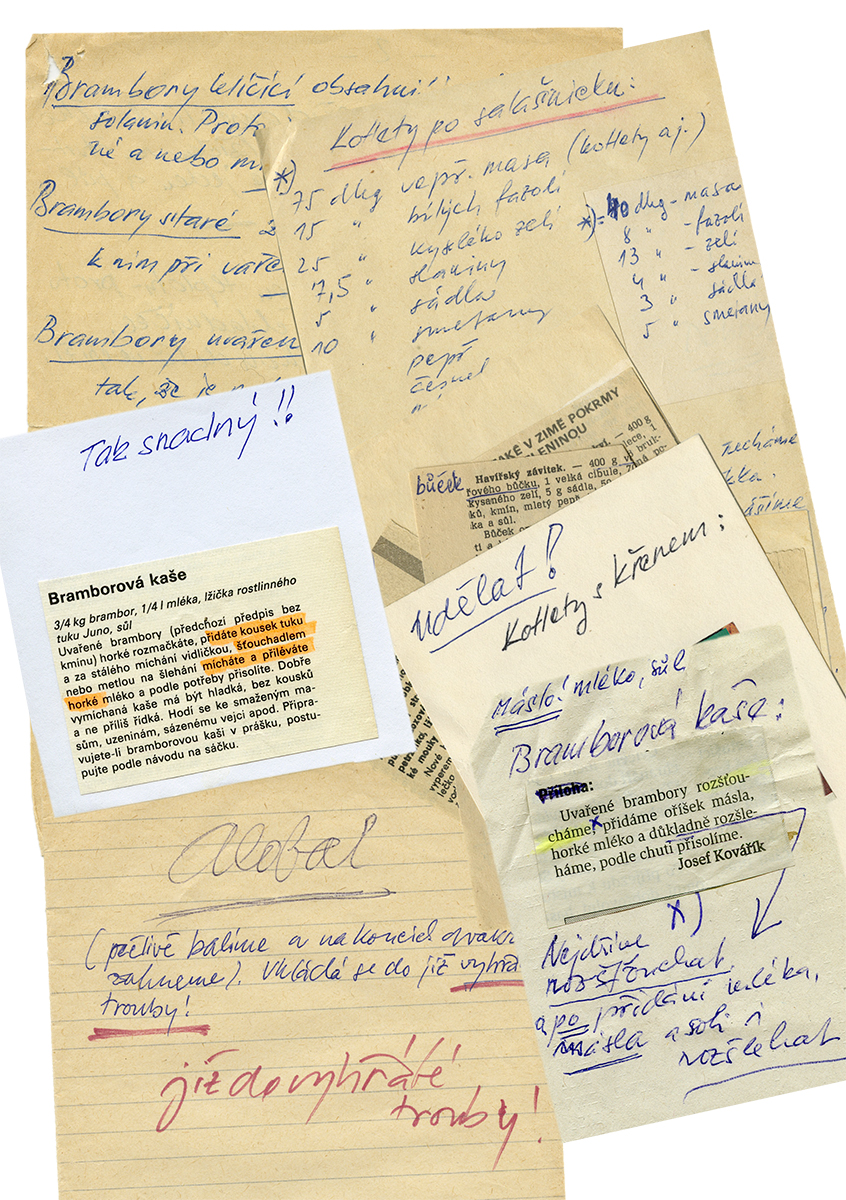 Brambory klíčící obsahují
solanin. Proto
né a nebo
Brambory staré
k nim při vaře
Brambory uvařen
tak, že je
Kotlety po salašnicku:
*) 75 dkg vepř. masa (kotlety aj.)
15 " bílých fazolí
25 " kyselého zelí
7,5 " slaniny
5 " sádla
10 " smetany
pepř
česnek
*) = 40 dkg - masa
8 " - fazolí
13 " - zelí
4 " - slanina
3 " sádla
5 " smetany
necháme
Tak snadný!!
Bramborová kaše
3/4 kg brambor, 1/4 l mléka, lžička rostlinného
tuku Juno, sůl
Uvařené brambory (předchozí předpis bez
kmínu) horké rozmačkáte, přidáte kousek tuku
a za stálého míchání vidličkou, šťouchadlem
nebo metlou na šlehání mícháte a přiléváte
horké mléko a podle potřeby přisolíte. Dobře
vymíchaná kaše má být hladká, bez kousků
a ne příliš řídká. Hodí se ke smaženým ma-
sům, uzeninám, sázenému vejci apod. Připra-
vujete-li bramborovou kaši v prášku, postu-
pujte podle návodu na sáčku.
AKÉ V ZIMĚ POKRMY
LENINOU
400 g
bůček
Havířský závitek. — 400 g v
rového bůčku, 1 velká cibule,
kysaného zelí, 5 g sádla, 50
ků, kmín, mletý pepř
ka a sůl.
Bůček
ké mouky
Nové
vyperem
lečko
Udělat!
Kotlety s křenem:
Máslo! mléko, sůl
Bramborová kaše:
Příloha:
Uvařené brambory rozšťou-
cháme, x přidáme oříšek másla,
horké mléko a důkladně rozšle-
háme, podle chuti přisolíme.
Josef Kovářík
x)
Nejdříve
rozšťouchat
a po přidání mléka,
másla a soli i
rozšlehat
Alobal
(pečlivě balíme a na koncích dvakr
zahneme). Vkládá se do již vyhřá
trouby!
již do vyhřáté
trouby!